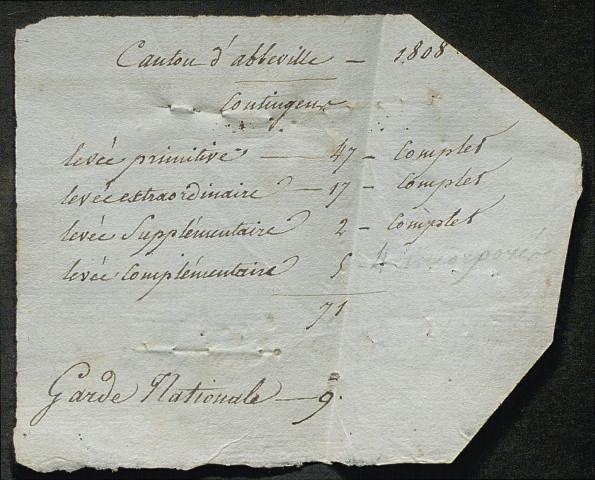 Canton d'abbeville — 1808
Contingent
levée primitive — 47 — complet
levée extraordinaire — 17 — complet
levée Supplémentaire 2 — complet
levée Complémentaire 5 — 4 incorporés
71
Garde Nationale — 9.